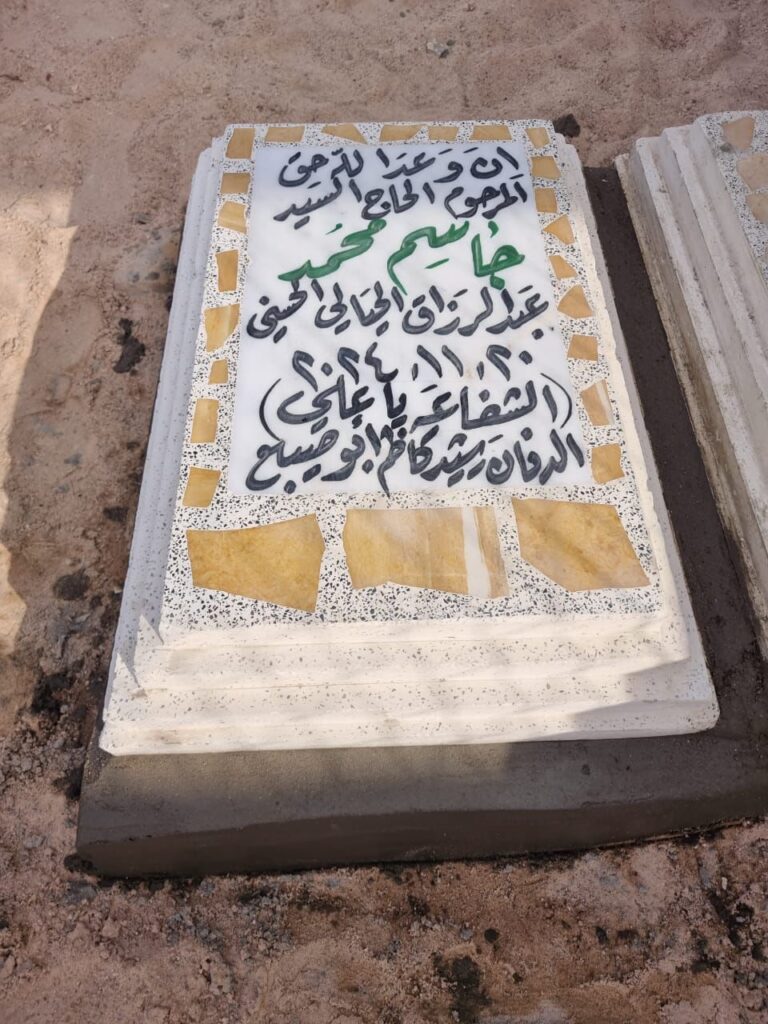 ان وعد الله حق
المرحوم الحاج السيد
جاسم محمد
عبد الرزاق الحيالي الحسيني
٢٠٢٤.١١.٢٠
(الشفاعة يا علي)
الدفان رشيد كاظم ابو صيبع